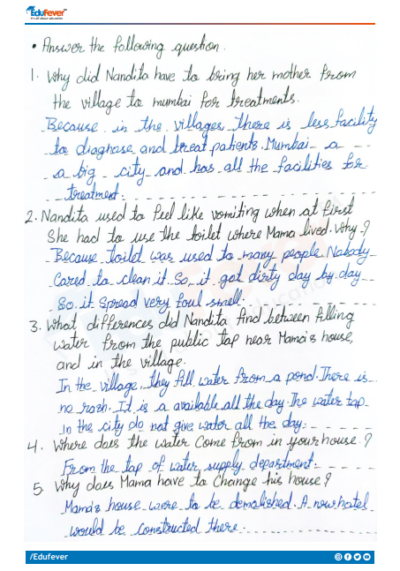 Edufever
• Answer the following question.
1. Why did Nandita have to bring her mother from
the village to mumbai for treatments.
Because in the villages there is less facility
to diaghose and treat patients. Mumbai a
a big city and has all the facilities for
treatment.
2. Nandita used to feel like vomiting when at first
She had to use the toilet where Mama lived. Why?
Because toilet was used to many people. Nobody
Cared to clean it. So it got dirty day by day
So it spread very foul smell.
3. What differences did Nandita find between filling
water from the public tap near Mama's house,
and in the village.
In the village, they fill water from a pond. There is
no rosh. It is a available all the day. The water tap
in the city do not give water all the day.
4. Where does the water Come from in your house?
From the tap of water supply department.
5. Why does Mama have to Change his house?
Mama's house were to be demolished. A new hotel
would be constructed there.
/Edufever